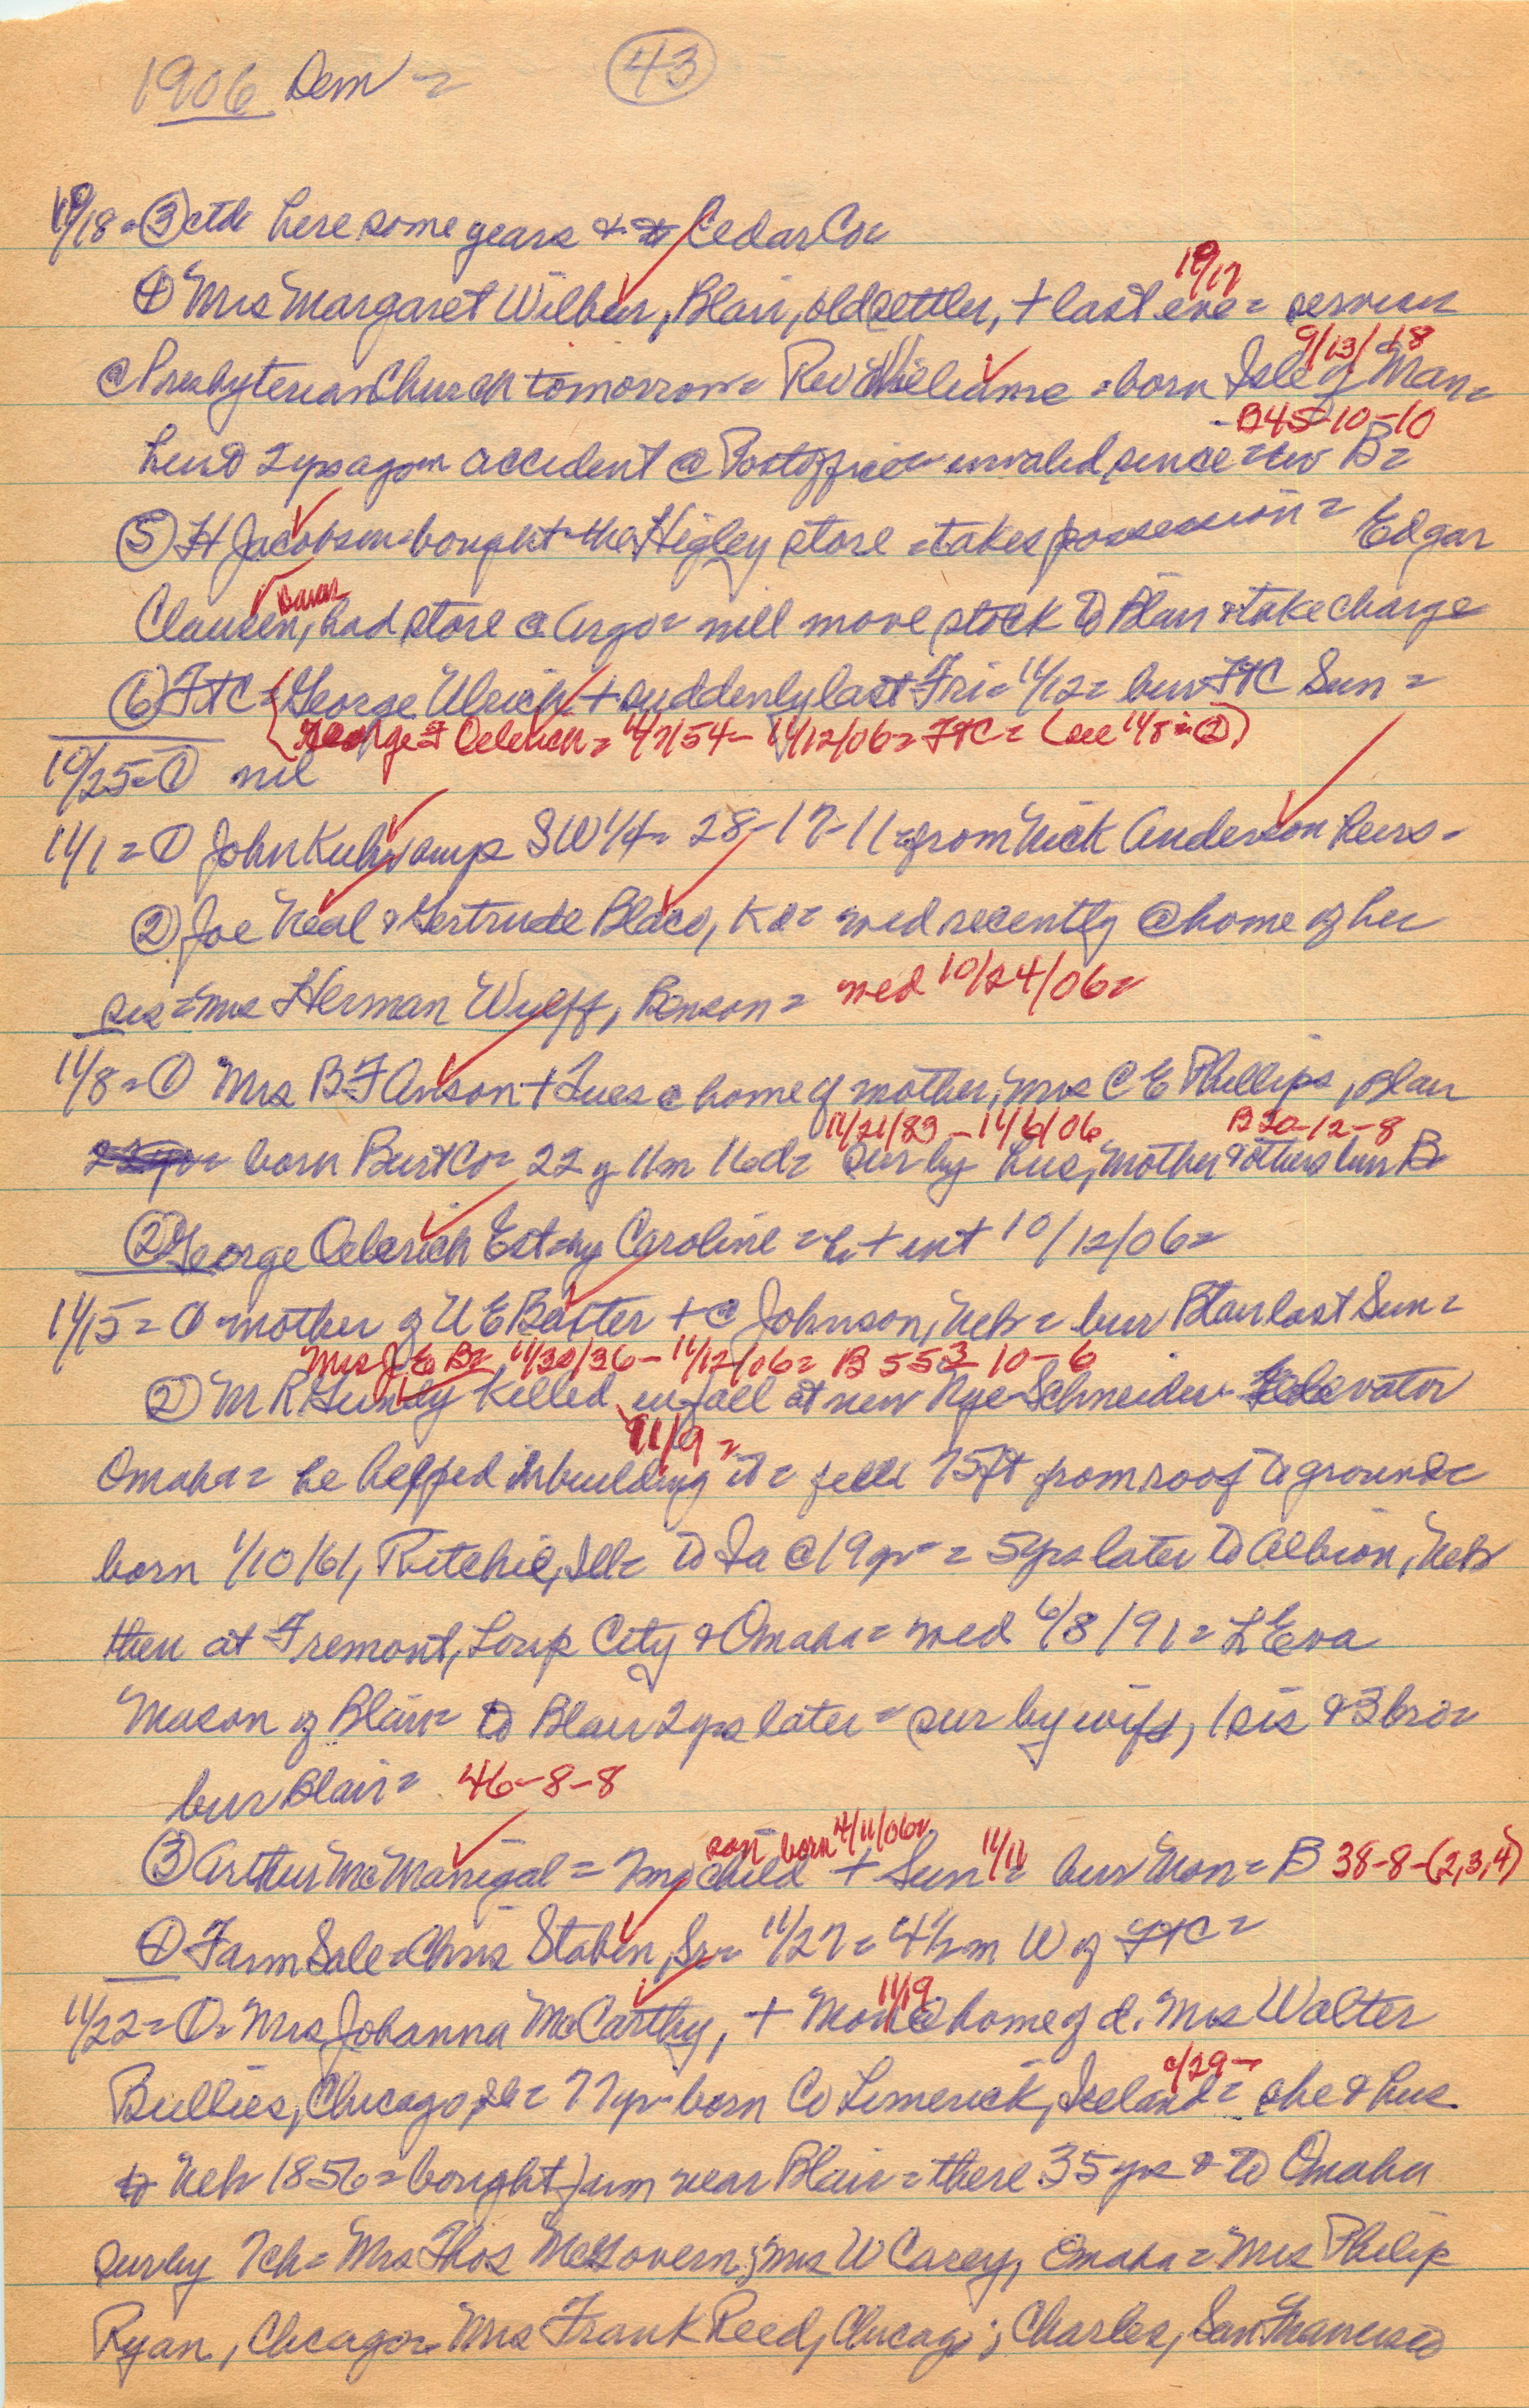 1906 Dem = (43)
10/18 = ③ ctd here some years & to Cedar Co =
10/17
④ Mrs Margaret Wilbur, Blair, old settler, + last eve = services
9/13/18
@ Presbyterian Church tomorrow = Rev Williams = born Isle of Man =
B 45-10-10
hurt 2 yrs ago in accident @ Postoffice = invalid since = bur B =
⑤ H Jacobsen bought the Higley store = takes possession = Edgar
Clausen, had store @ Argo = will move stock to Blair & take charge
⑥ FTC = George Ulrich + suddenly last Fri = 10/12 = bur FTC Sun =
George F Oelrich = 1854 - 10/12/06 = FTC = (see 11/8 = ②)
10/25 = ① nil
11/1 = ① John Kuhr SW 1/4 = 28-17-11 = from Nick Anderson heirs =
② Joe Neal & Gertrude Blaco, K = wed recently @ home of her
sis = Mrs Herman Wulff, Benson = wed 10/24/06 =
11/8 = ① Mrs B F Anson + Tues @ home of mother, Mrs C E Phillips, Blair
11/21/83 - 11/6/06 B 20-12-8
born Burt Co = 22 y 11m 16d = sur by hus, mother & others bur B
② George Oelrich Est = by Caroline = h + int 10/12/06 =
11/15 = ① mother of U E Baxter + @ Johnson, Neb = bur Blair last Sun =
Mrs J E B = 11/30/36 - 11/12/06 = B 553-10-6
② M R Gundy killed in fall at new Nye Schneider Elevator
11/9 =
Omaha = he helped in building it = fell 75 ft from roof to ground =
born 1/10/61, Ritchie, Ill = to Ia @ 19 yr = 5 yrs later to Albion, Neb
then at Fremont, Loup City & Omaha = wed 6/8/91 = L Eva
Mason of Blair = to Blair 2 yrs later = sur by wife, 1 sis & 3 bro =
bur Blair = 46-8-8
son born 4/11/06 = 11/11
③ Arthur McManigal = 7 mo child + Sun = bur Mon = B 38-8-(2,3,4)
④ Farm Sale = Chris Staben, Sr = 11/27 = 4 1/2 m W of FTC =
11/19
11/22 = ① = Mrs Johanna McCarthy, + Mon @ home of d. Mrs Walter
/29 =
Bullies, Chicago, Ill = 77 yr = born Co Limerick, Ireland = she & hus
to Neb 1856 = bought farm near Blair = there 35 yrs & to Omaha
sur by 7 ch = Mrs Thos McGovern; Mrs W Carey, Omaha = Mrs Philip
Ryan, Chicago = Mrs Frank Reed, Chicago; Charles, San Francisco